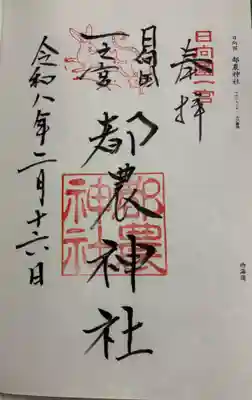 日向国 都農神社
奉拝
日向一宮
日向国
一之宮
都農神社
都農神社
令和八年二月十六日
西海道